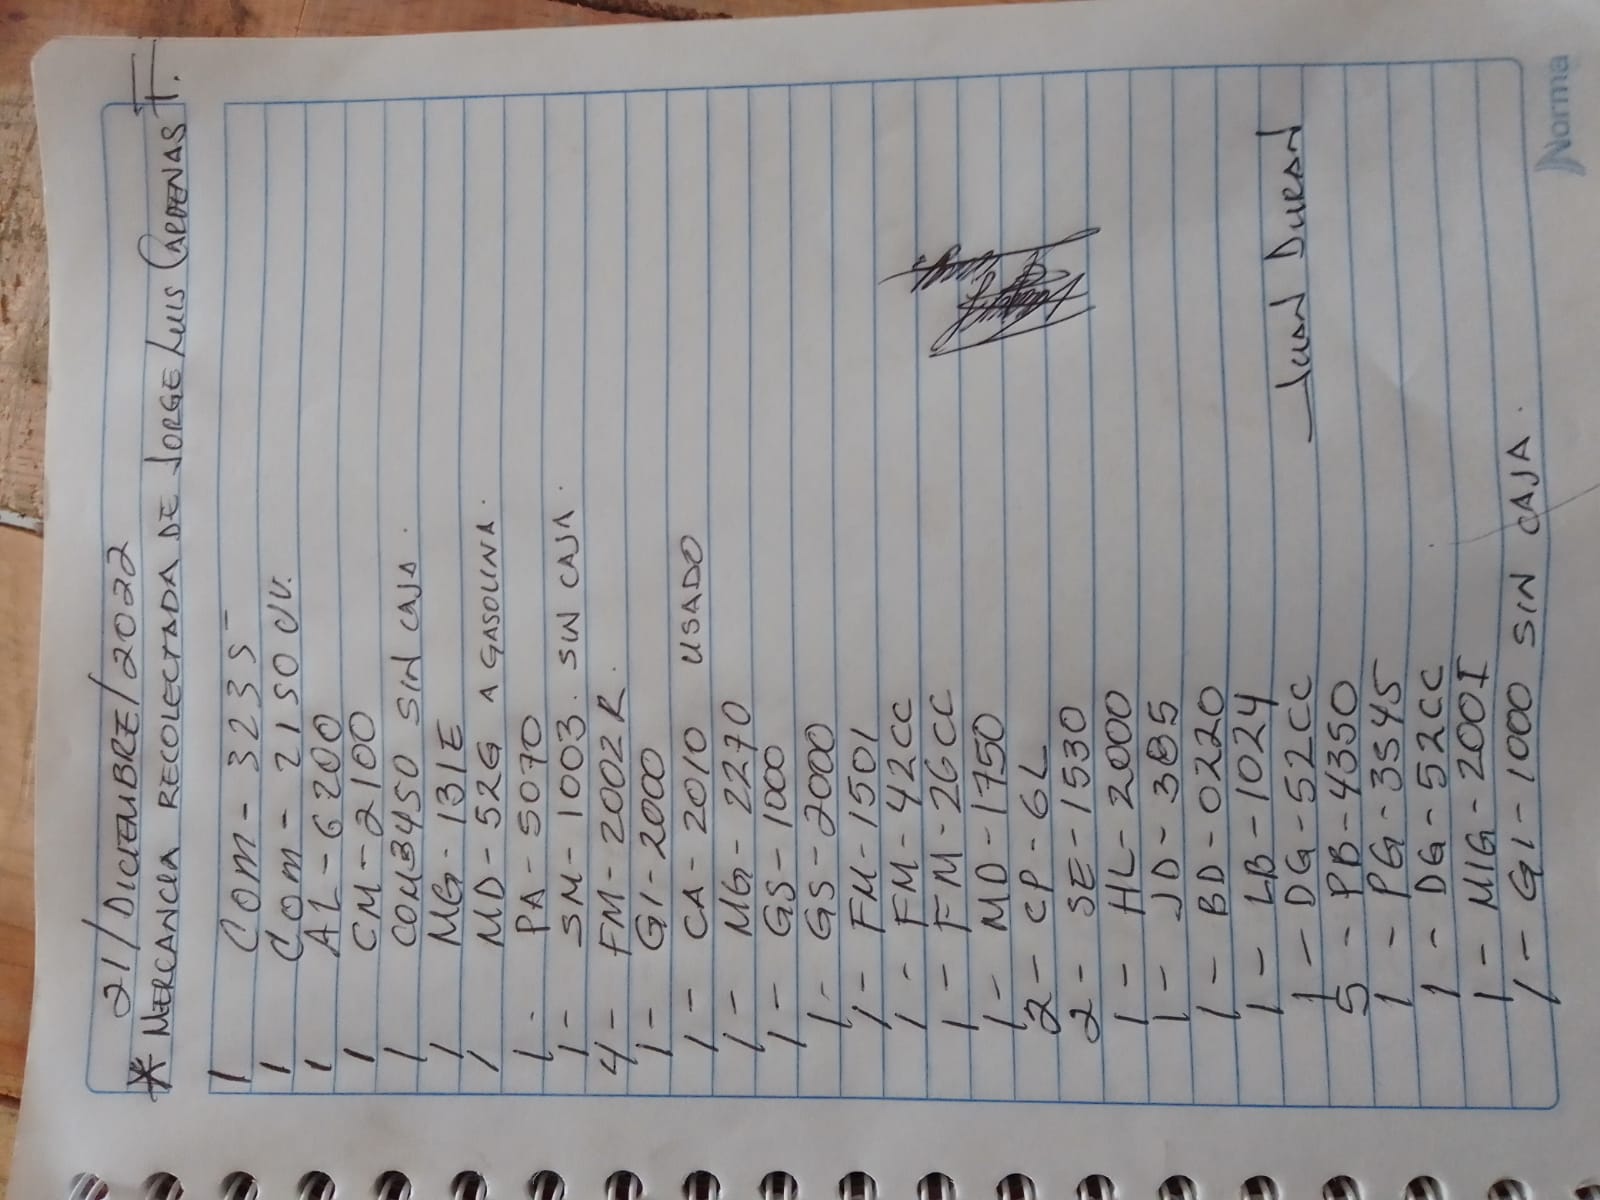 21/DICIEMBRE/2022
* MERCANCIA RECOLECTADA DE JORGE LUIS CARDENAS T.
1 COM-3235
1 COM-2150 C/V.
1 AL-6200
1 CM-2100
1 COMB450 SIN CAJA.
1 MG-131E
1 MD-52G A GASOLINA.
1- PA-5070
1- SM-1003. SIN CAJA.
4- FM-2002R.
1- GI-2000
1- CA-2010 USADO
1- MG-2270
1- GS-1000
1- GS-2000
1- FM-1501
1- FM-42CC
1- FM-26CC
1- MD-1750
2- CP-6L
2- SE-1530
1- HL-2000
1- JD-385
1- BD-0220
1- LB-1024
1- DG-52CC
5- PB-4350
1- PG-3545
1- DG-52CC
1- MIG-200I
1- GI-1000 SIN CAJA.
JUAN DURAN
Norma